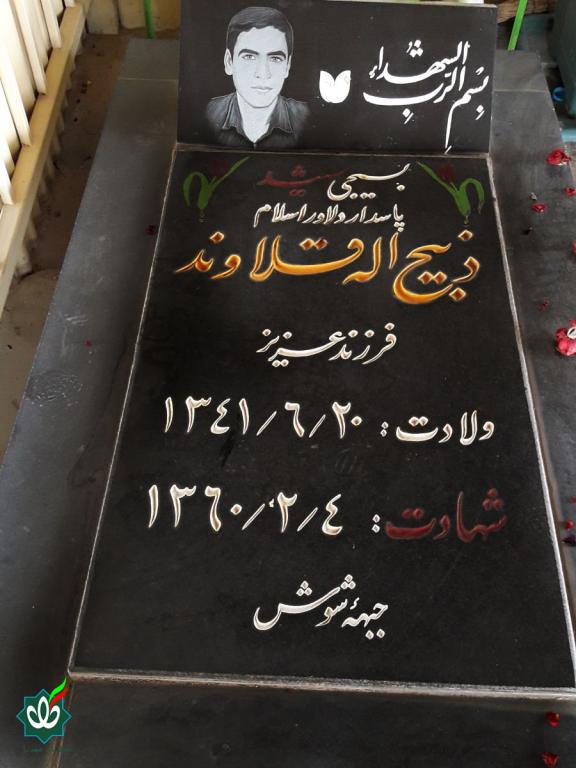 بسم الرب الشهداء
بسیجی شهید
پاسدار دلاور اسلام
ذبیح اله قلاوند
فرزند عزیز
ولادت: ۱۳٤۱/٦/۲۰
شهادت: ۱۳٦۰/۲/٤
جبههٔ شوش